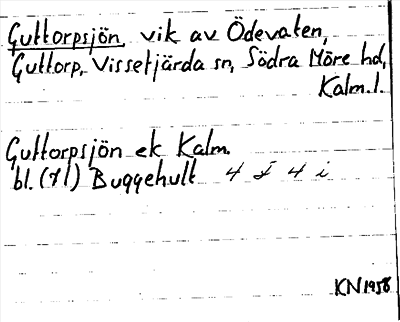 Guttorpsjön, vik av Ödevaten,
Guttorp, Vissefjärda sn, Södra Möre hd,
Kalm. l.
Guttorpsjön ek Kalm.
bl. (71) Buggehult 4 F 4 i
KN 1958